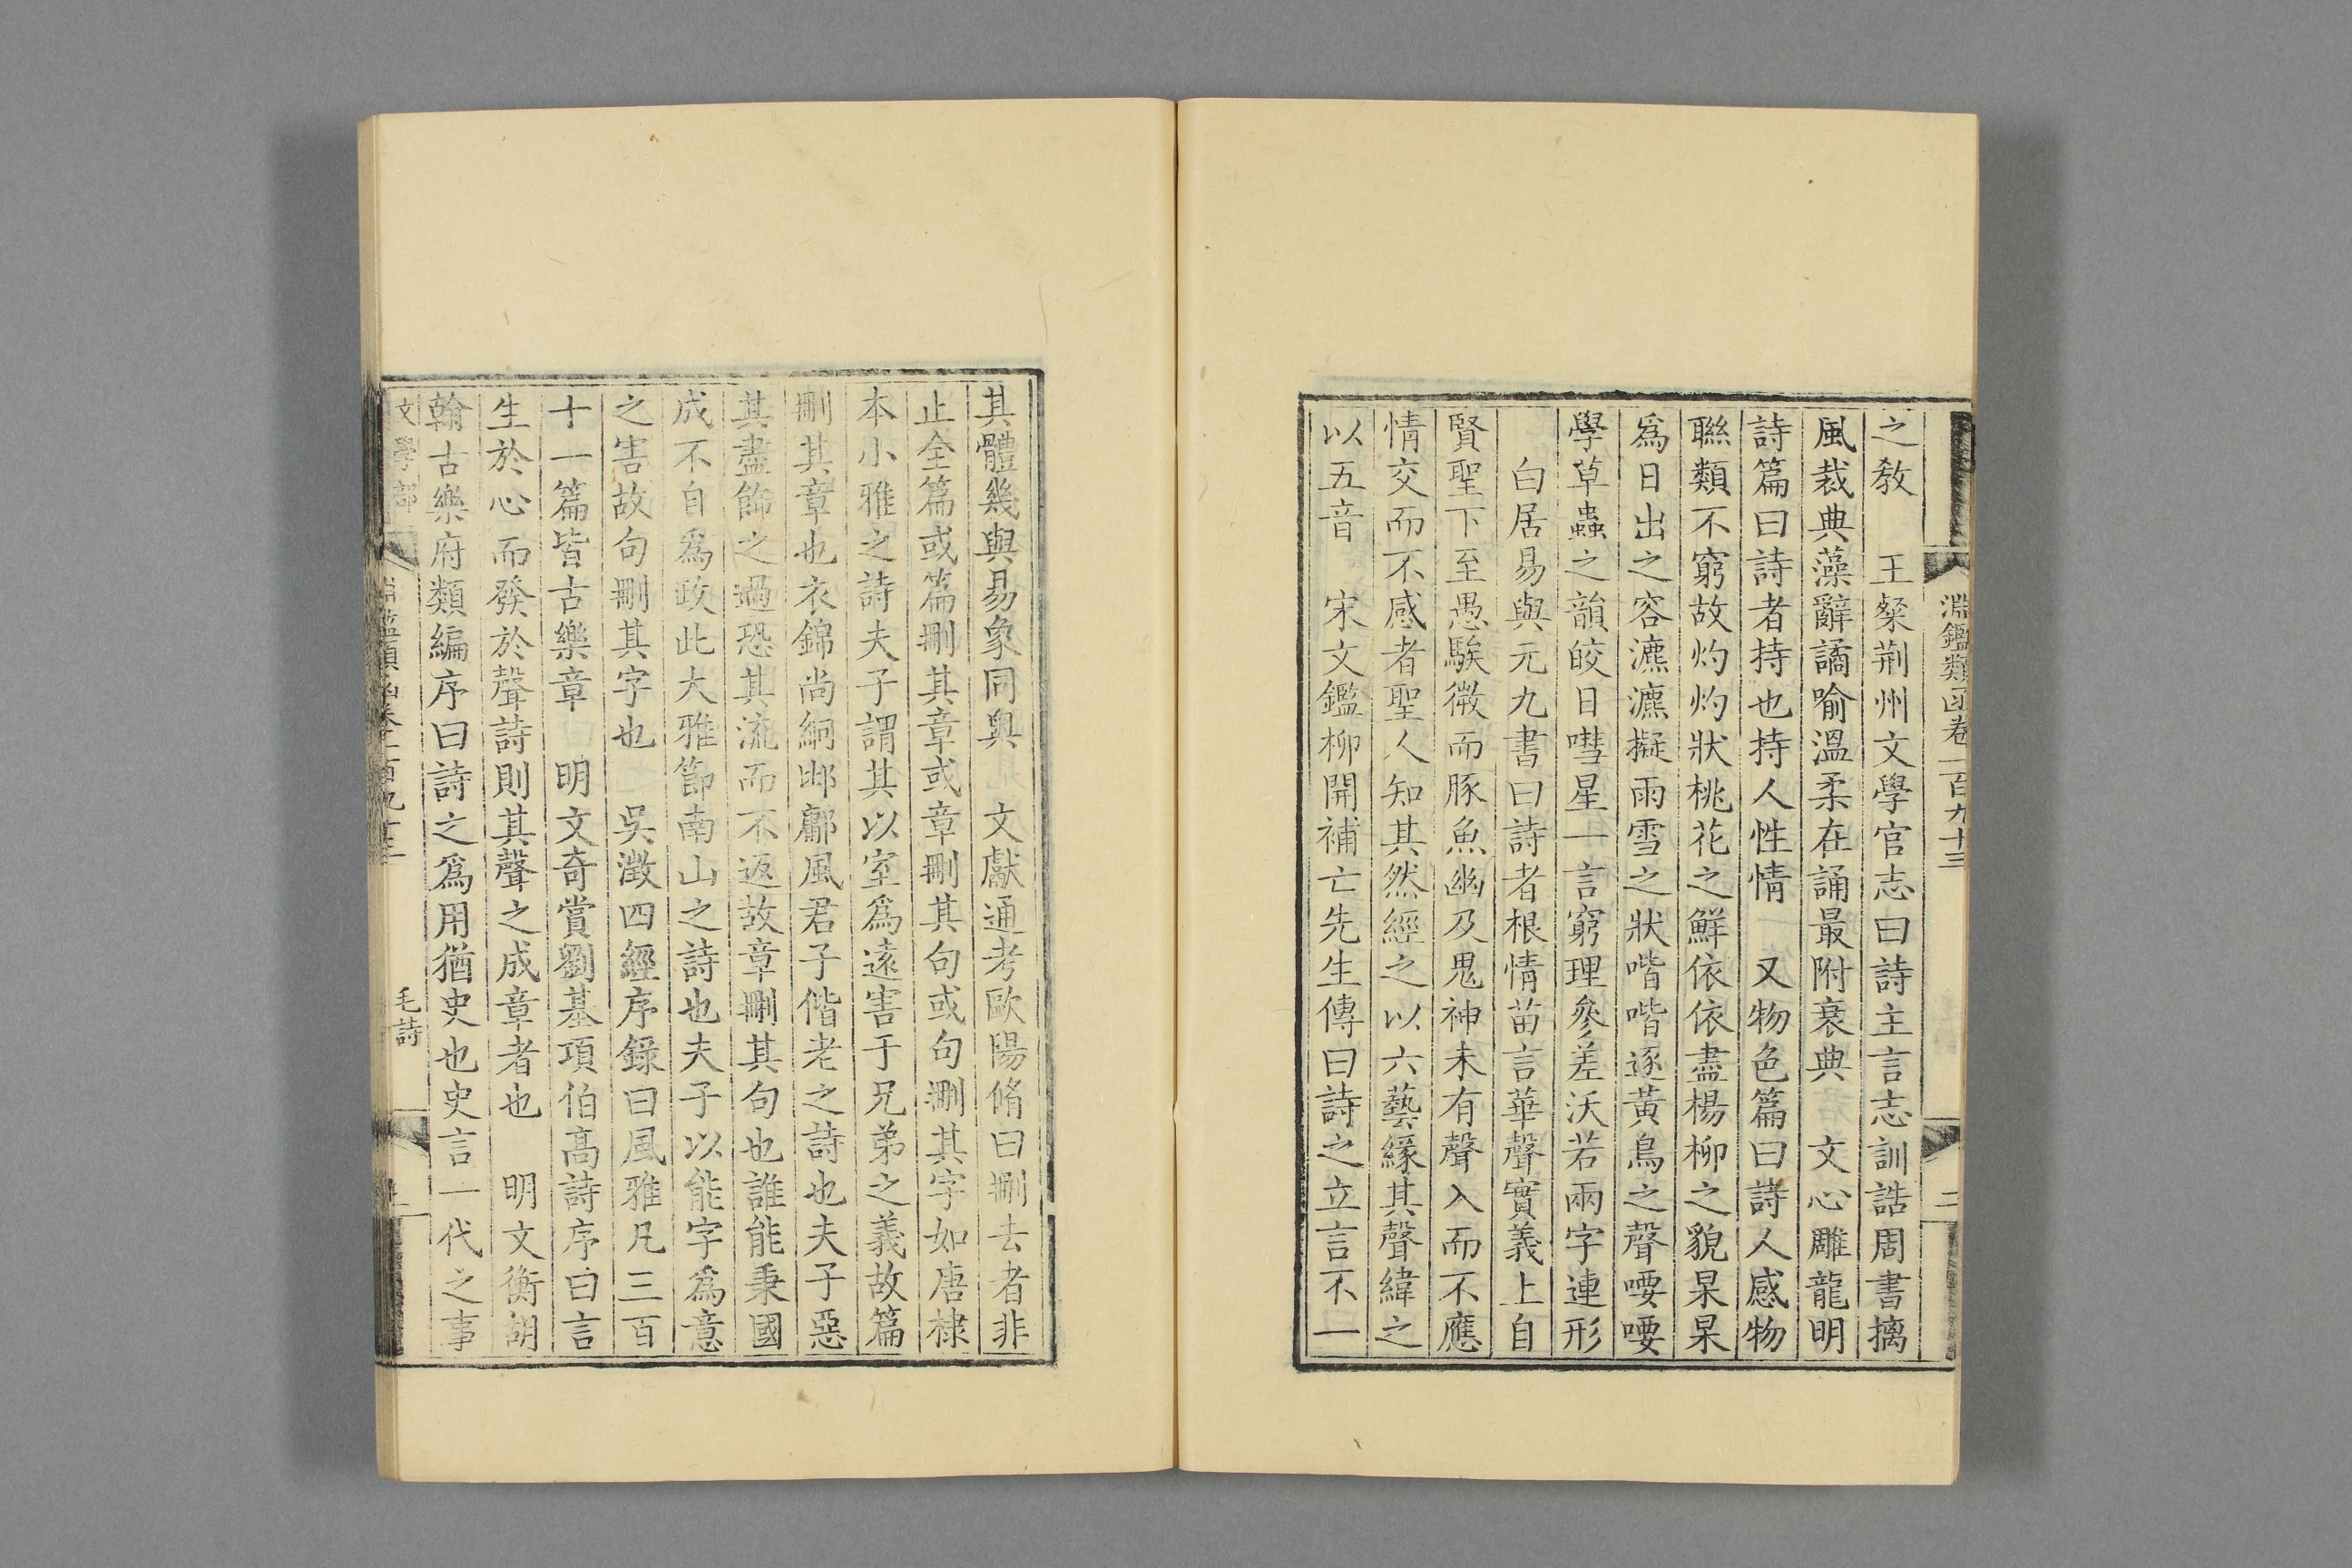 淵鑑類函卷一百九十三
二
之教　王粲荊州文學官志曰詩主言志訓誥周書摛
風裁典藻辭譎喻溫柔在誦最附衷典　文心雕龍明
詩篇曰詩者持也持人性情　又物色篇曰詩人感物
聯類不窮故灼灼狀桃花之鮮依依盡楊柳之貌杲杲
為日出之容瀌瀌擬雨雪之狀喈喈逐黃鳥之聲喓喓
學草蟲之韻皎日嘒星一言窮理參差沃若兩字連形
白居易與元九書曰詩者根情苗言華聲實義上自
賢聖下至愚騃微而豚魚幽及鬼神未有聲入而不應
情交而不感者聖人知其然經之以六藝緣其聲緯之
以五音　宋文鑑柳開補亡先生傳曰詩之立言不一
其體幾與易象同奧　文獻通考歐陽脩曰刪去者非
止全篇或篇刪其章或章刪其句或句刪其字如唐棣
本小雅之詩夫子謂其以室為遠害于兄弟之義故篇
刪其章也衣錦尚絅邶鄘風君子偕老之詩也夫子惡
其盡飾之過恐其流而不返故章刪其句也誰能秉國
成不自為政此大雅節南山之詩也夫子以能字為意
之害故句刪其字也　吳澂四經序錄曰風雅凡三百
十一篇皆古樂章　明文奇賞劉基項伯高詩序曰言
生於心而發於聲詩則其聲之成章者也　明文衡胡
翰古樂府類編序曰詩之為用猶史也史言一代之事
文學部
毛詩